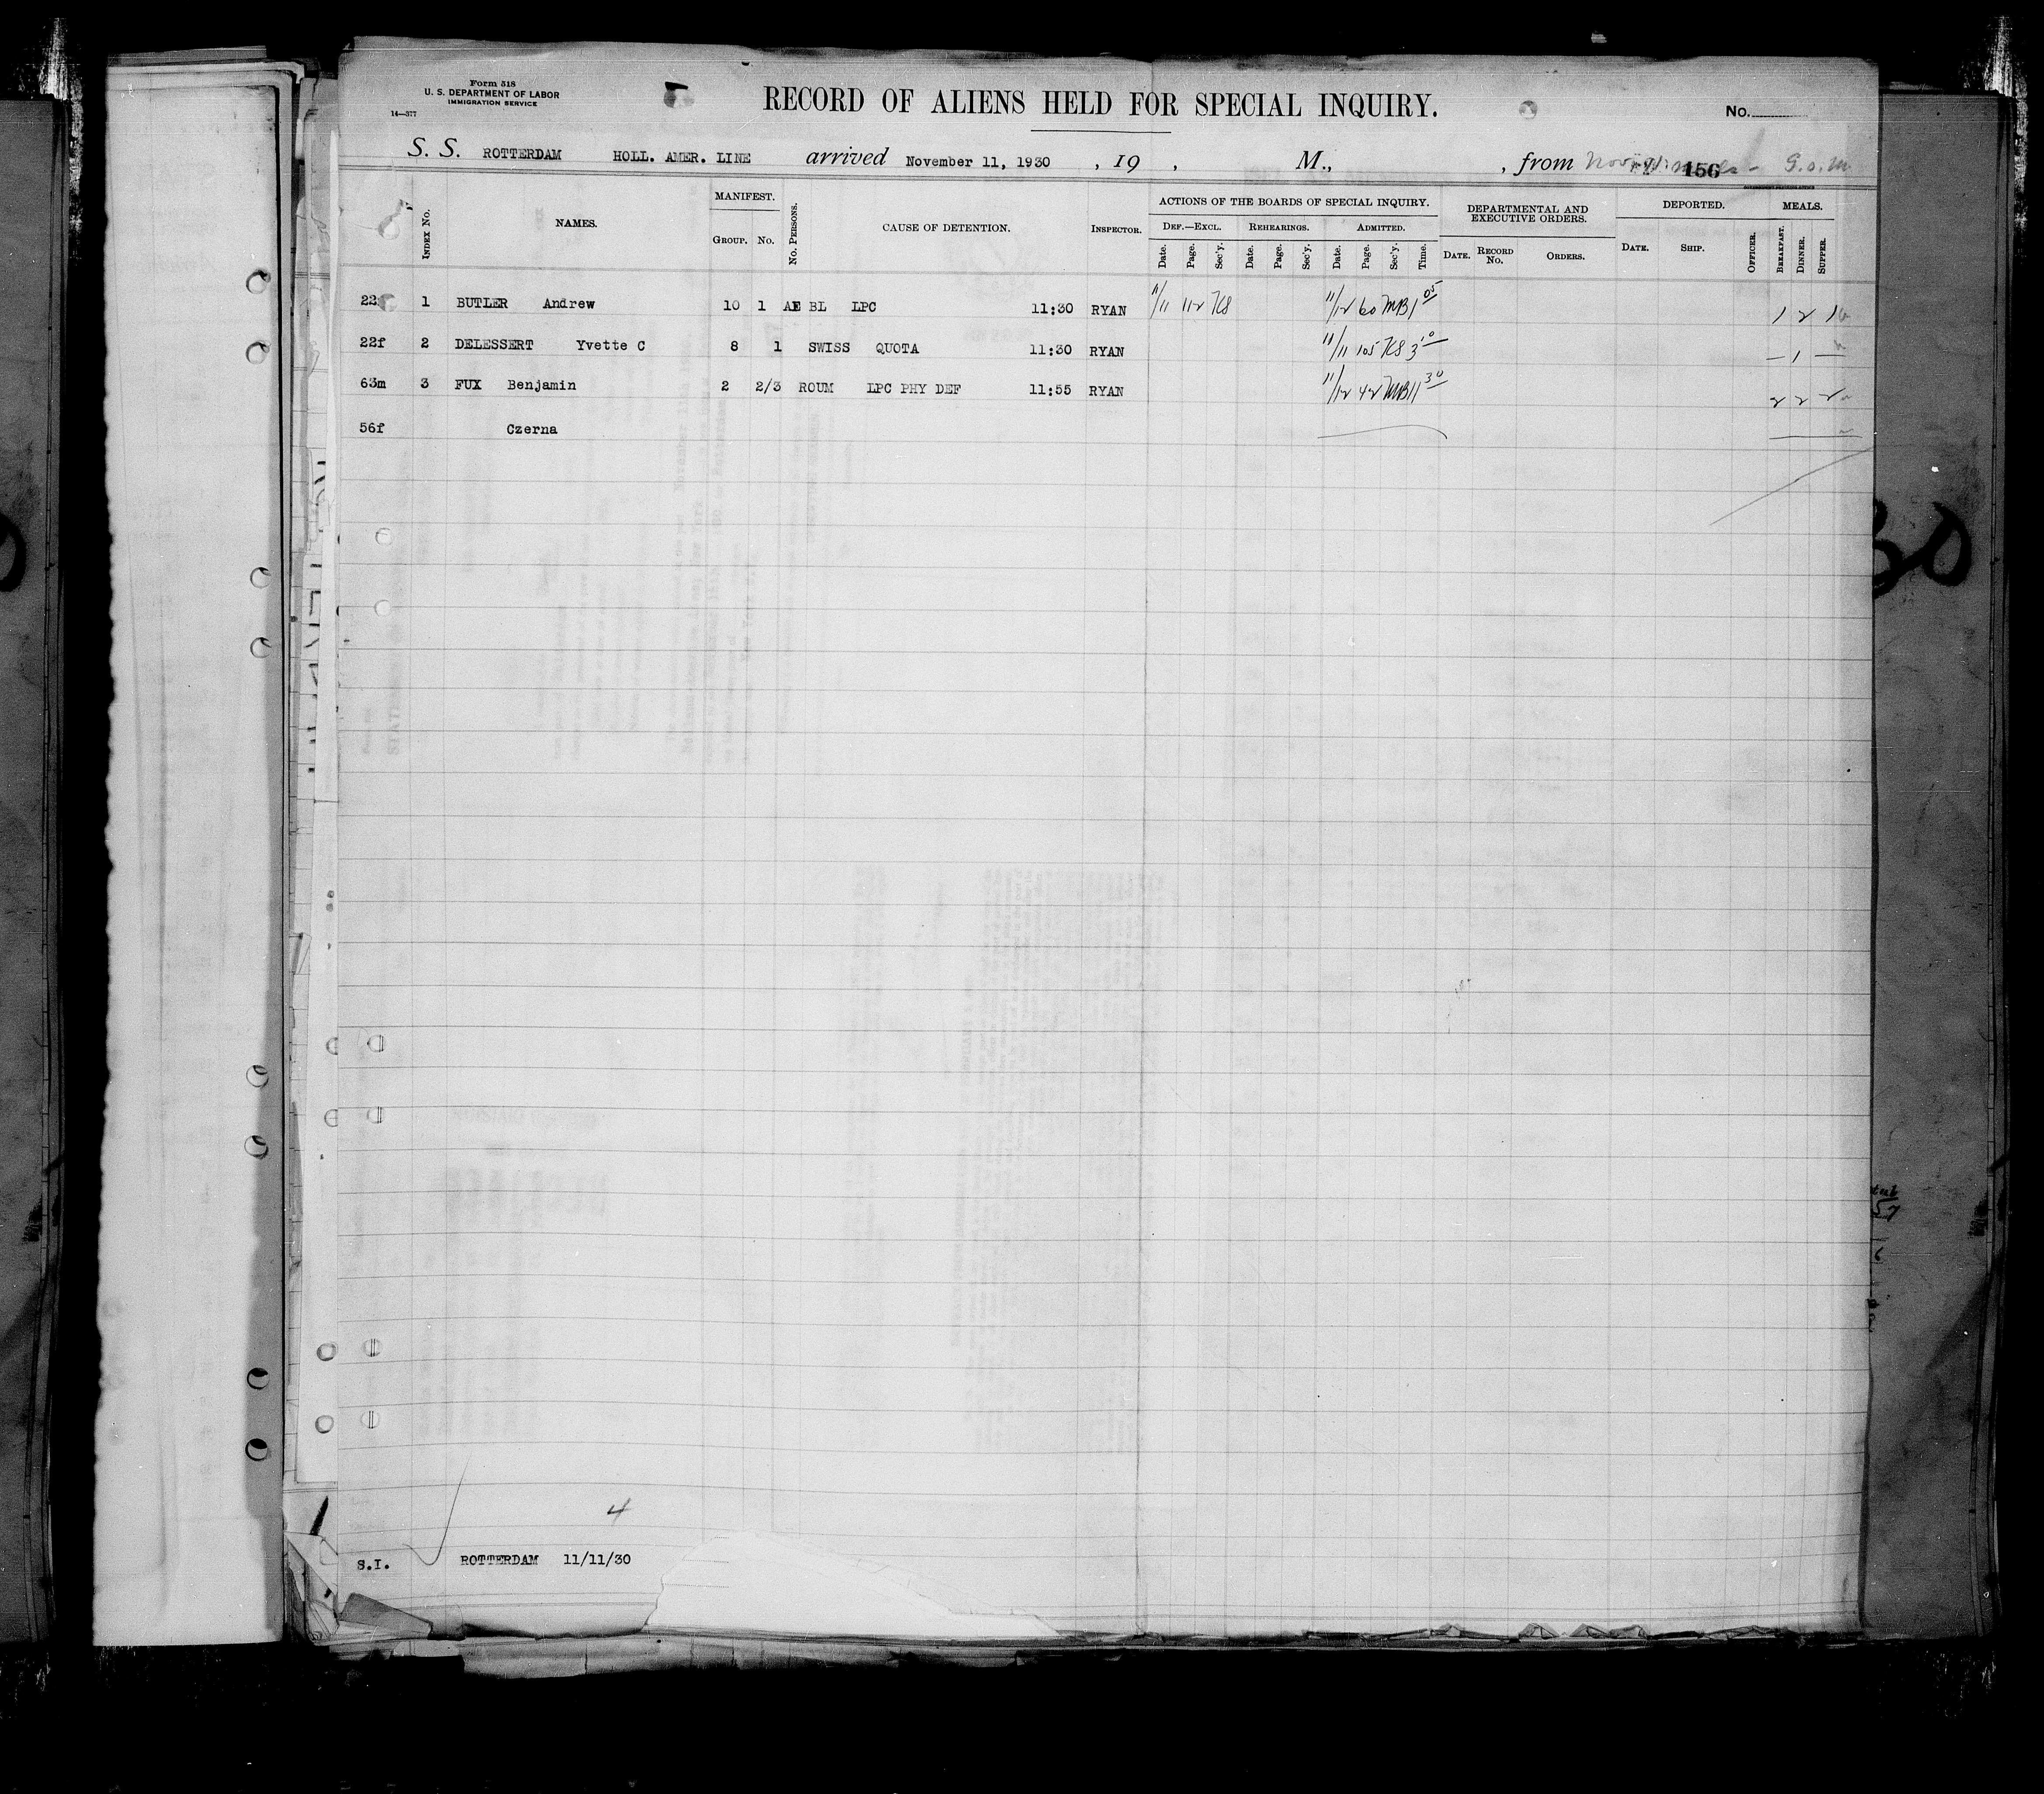 Form 518
U. S. DEPARTMENT OF LABOR
IMMIGRATION SERVICE
14—377
RECORD OF ALIENS HELD FOR SPECIAL INQUIRY.
No.
S. S. ROTTERDAM HOLL. AMER. LINE arrived November 11, 1930 , 19 , M., , from 156
INDEX NO. NAMES. MANIFEST. GROUP. NO. NO. PERSONS. CAUSE OF DETENTION. INSPECTOR. ACTIONS OF THE BOARDS OF SPECIAL INQUIRY. DEPARTMENTAL AND EXECUTIVE ORDERS. DEPORTED. MEALS.
DEF.—EXCL. REHEARINGS. ADMITTED.
Date. Page. Sec'y. Date. Page. Sec'y. Date. Page. Sec'y. Time. DATE. RECORD NO. ORDERS. DATE. SHIP. OFFICER. BREAKFAST. DINNER. SUPPER.
22 1 BUTLER Andrew 10 1 BL LPC 11:30 RYAN 11/11 112 KS 11/12 60 MB 1 05 1 2 1
22f 2 DELESSERT Yvette C 8 1 SWISS QUOTA 11:30 RYAN 11/11 105 KS 3 — 1 —
63m 3 FUX Benjamin 2 2/3 ROUM LPC PHY DEF 11:55 RYAN 11/12 42 MB 11 30 2 2 2
56f Czerna
4
S.I. ROTTERDAM 11/11/30